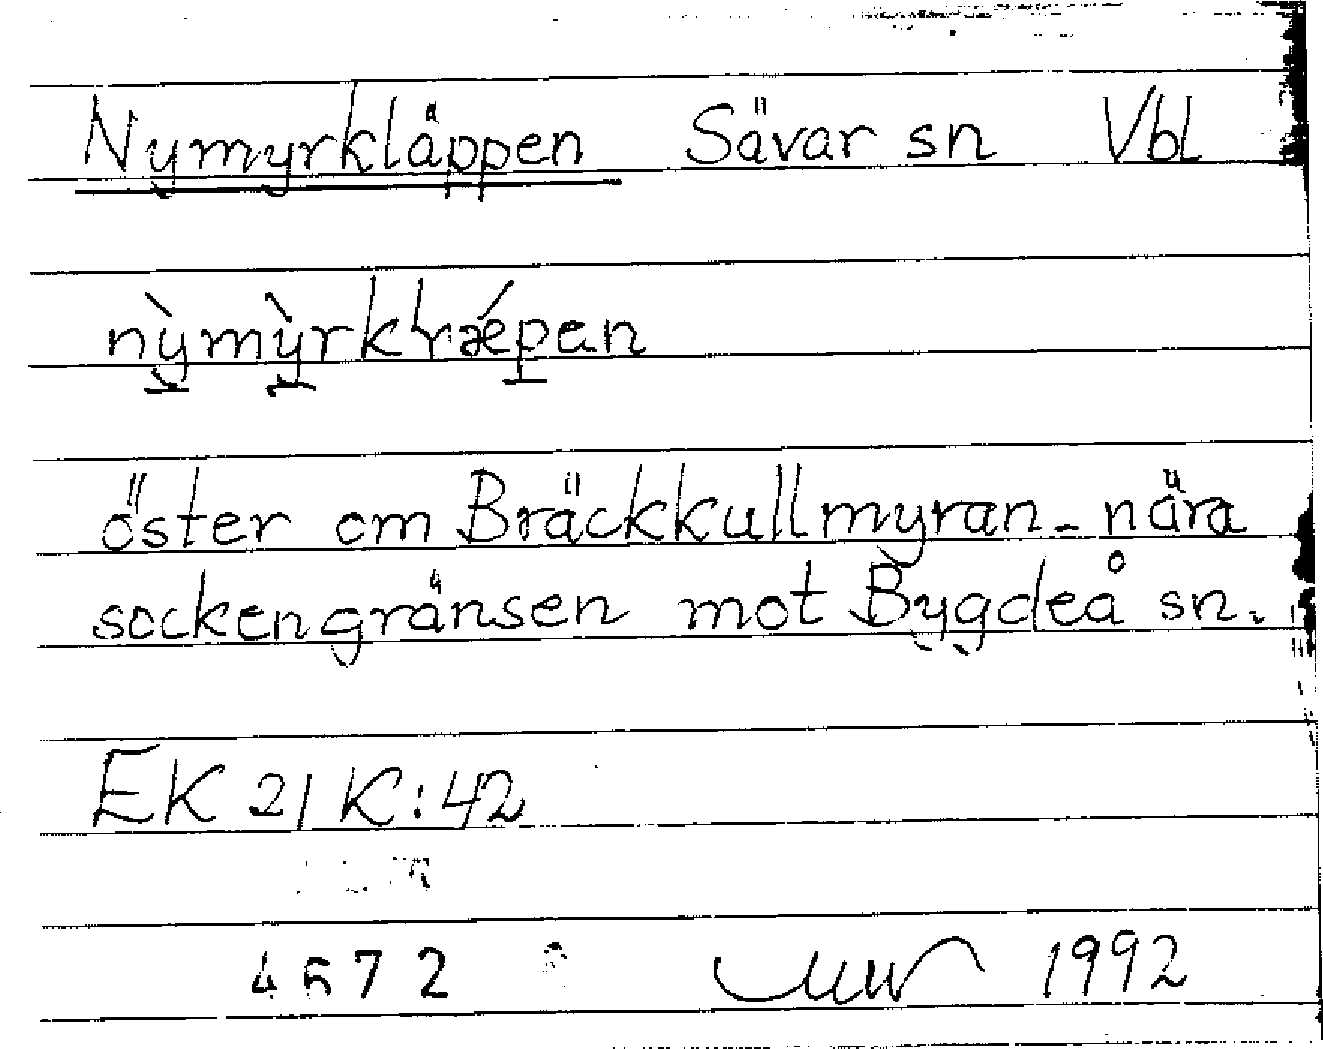 Nymyrkläppen Sävar sn Vbl
nỳmỳrkɭrǽpan
öster om Bräckkullmyran - nära
sockengränsen mot Bygdeå sn.
EK 21 K:42
4672
1992